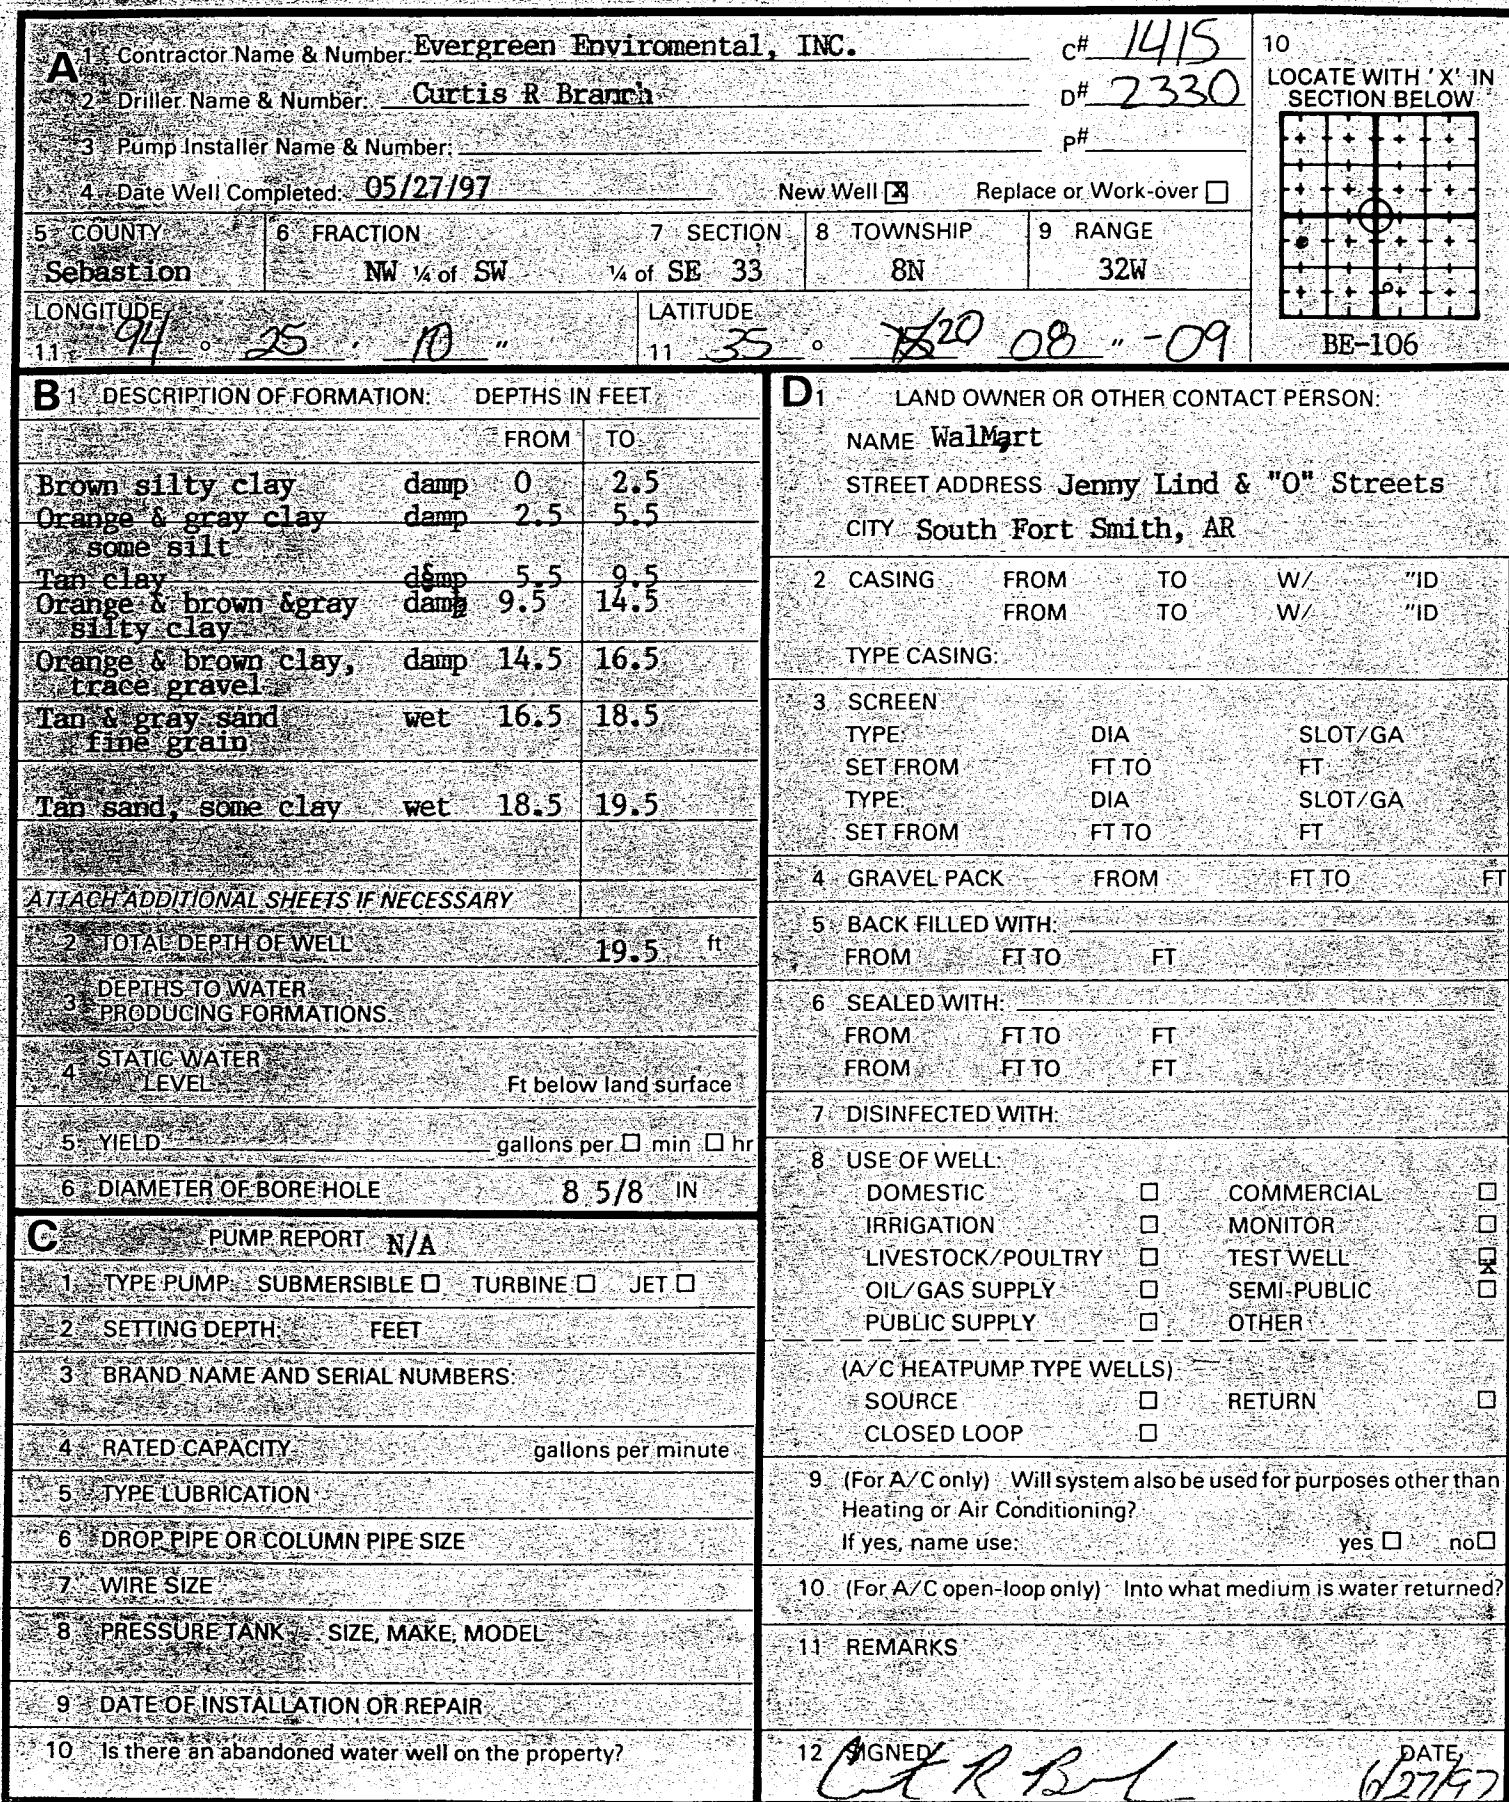 A 1 Contractor Name & Number: Evergreen Enviromental, INC. C# 1415
2 Driller Name & Number: Curtis R Branch D# 2330
3 Pump Installer Name & Number: P#
4 Date Well Completed: 05/27/97 New Well X Replace or Work-over
10
LOCATE WITH 'X' IN
SECTION BELOW
BE-106
5 COUNTY 6 FRACTION 7 SECTION 8 TOWNSHIP 9 RANGE
Sebastion NW ¼ of SW ¼ of SE 33 8N 32W
LONGITUDE LATITUDE
11 94 ° 25 ' 10 " 11 35 ° 20 08 " -09
B 1 DESCRIPTION OF FORMATION: DEPTHS IN FEET
FROM TO
Brown silty clay damp 0 2.5
Orange & gray clay damp 2.5 5.5
some silt
Tan clay damp 5.5 9.5
Orange & brown &gray damp 9.5 14.5
silty clay
Orange & brown clay, damp 14.5 16.5
trace gravel
Tan & gray sand wet 16.5 18.5
fine grain
Tan sand, some clay wet 18.5 19.5
ATTACH ADDITIONAL SHEETS IF NECESSARY
2 TOTAL DEPTH OF WELL 19.5 ft
3 DEPTHS TO WATER
PRODUCING FORMATIONS.
4 STATIC WATER
LEVEL Ft below land surface
5 YIELD gallons per min hr
6 DIAMETER OF BORE HOLE 8 5/8 IN
C PUMP REPORT N/A
1 TYPE PUMP SUBMERSIBLE TURBINE JET
2 SETTING DEPTH: FEET
3 BRAND NAME AND SERIAL NUMBERS:
4 RATED CAPACITY gallons per minute
5 TYPE LUBRICATION
6 DROP PIPE OR COLUMN PIPE SIZE
7 WIRE SIZE
8 PRESSURE TANK SIZE, MAKE, MODEL
9 DATE OF INSTALLATION OR REPAIR
10 Is there an abandoned water well on the property?
D 1 LAND OWNER OR OTHER CONTACT PERSON:
NAME WalMart
STREET ADDRESS Jenny Lind & "O" Streets
CITY South Fort Smith, AR
2 CASING FROM TO W/ "ID
FROM TO W/ "ID
TYPE CASING:
3 SCREEN
TYPE: DIA SLOT/GA
SET FROM FT TO FT
TYPE: DIA SLOT/GA
SET FROM FT TO FT
4 GRAVEL PACK FROM FT TO FT
5 BACK FILLED WITH:
FROM FT TO FT
6 SEALED WITH:
FROM FT TO FT
FROM FT TO FT
7 DISINFECTED WITH:
8 USE OF WELL:
DOMESTIC COMMERCIAL
IRRIGATION MONITOR
LIVESTOCK/POULTRY TEST WELL X
OIL/GAS SUPPLY SEMI-PUBLIC
PUBLIC SUPPLY OTHER
(A/C HEATPUMP TYPE WELLS)
SOURCE RETURN
CLOSED LOOP
9 (For A/C only) Will system also be used for purposes other than
Heating or Air Conditioning?
If yes, name use: yes no
10 (For A/C open-loop only) Into what medium is water returned?
11 REMARKS
12 SIGNED Curt R Branch DATE 6/27/97